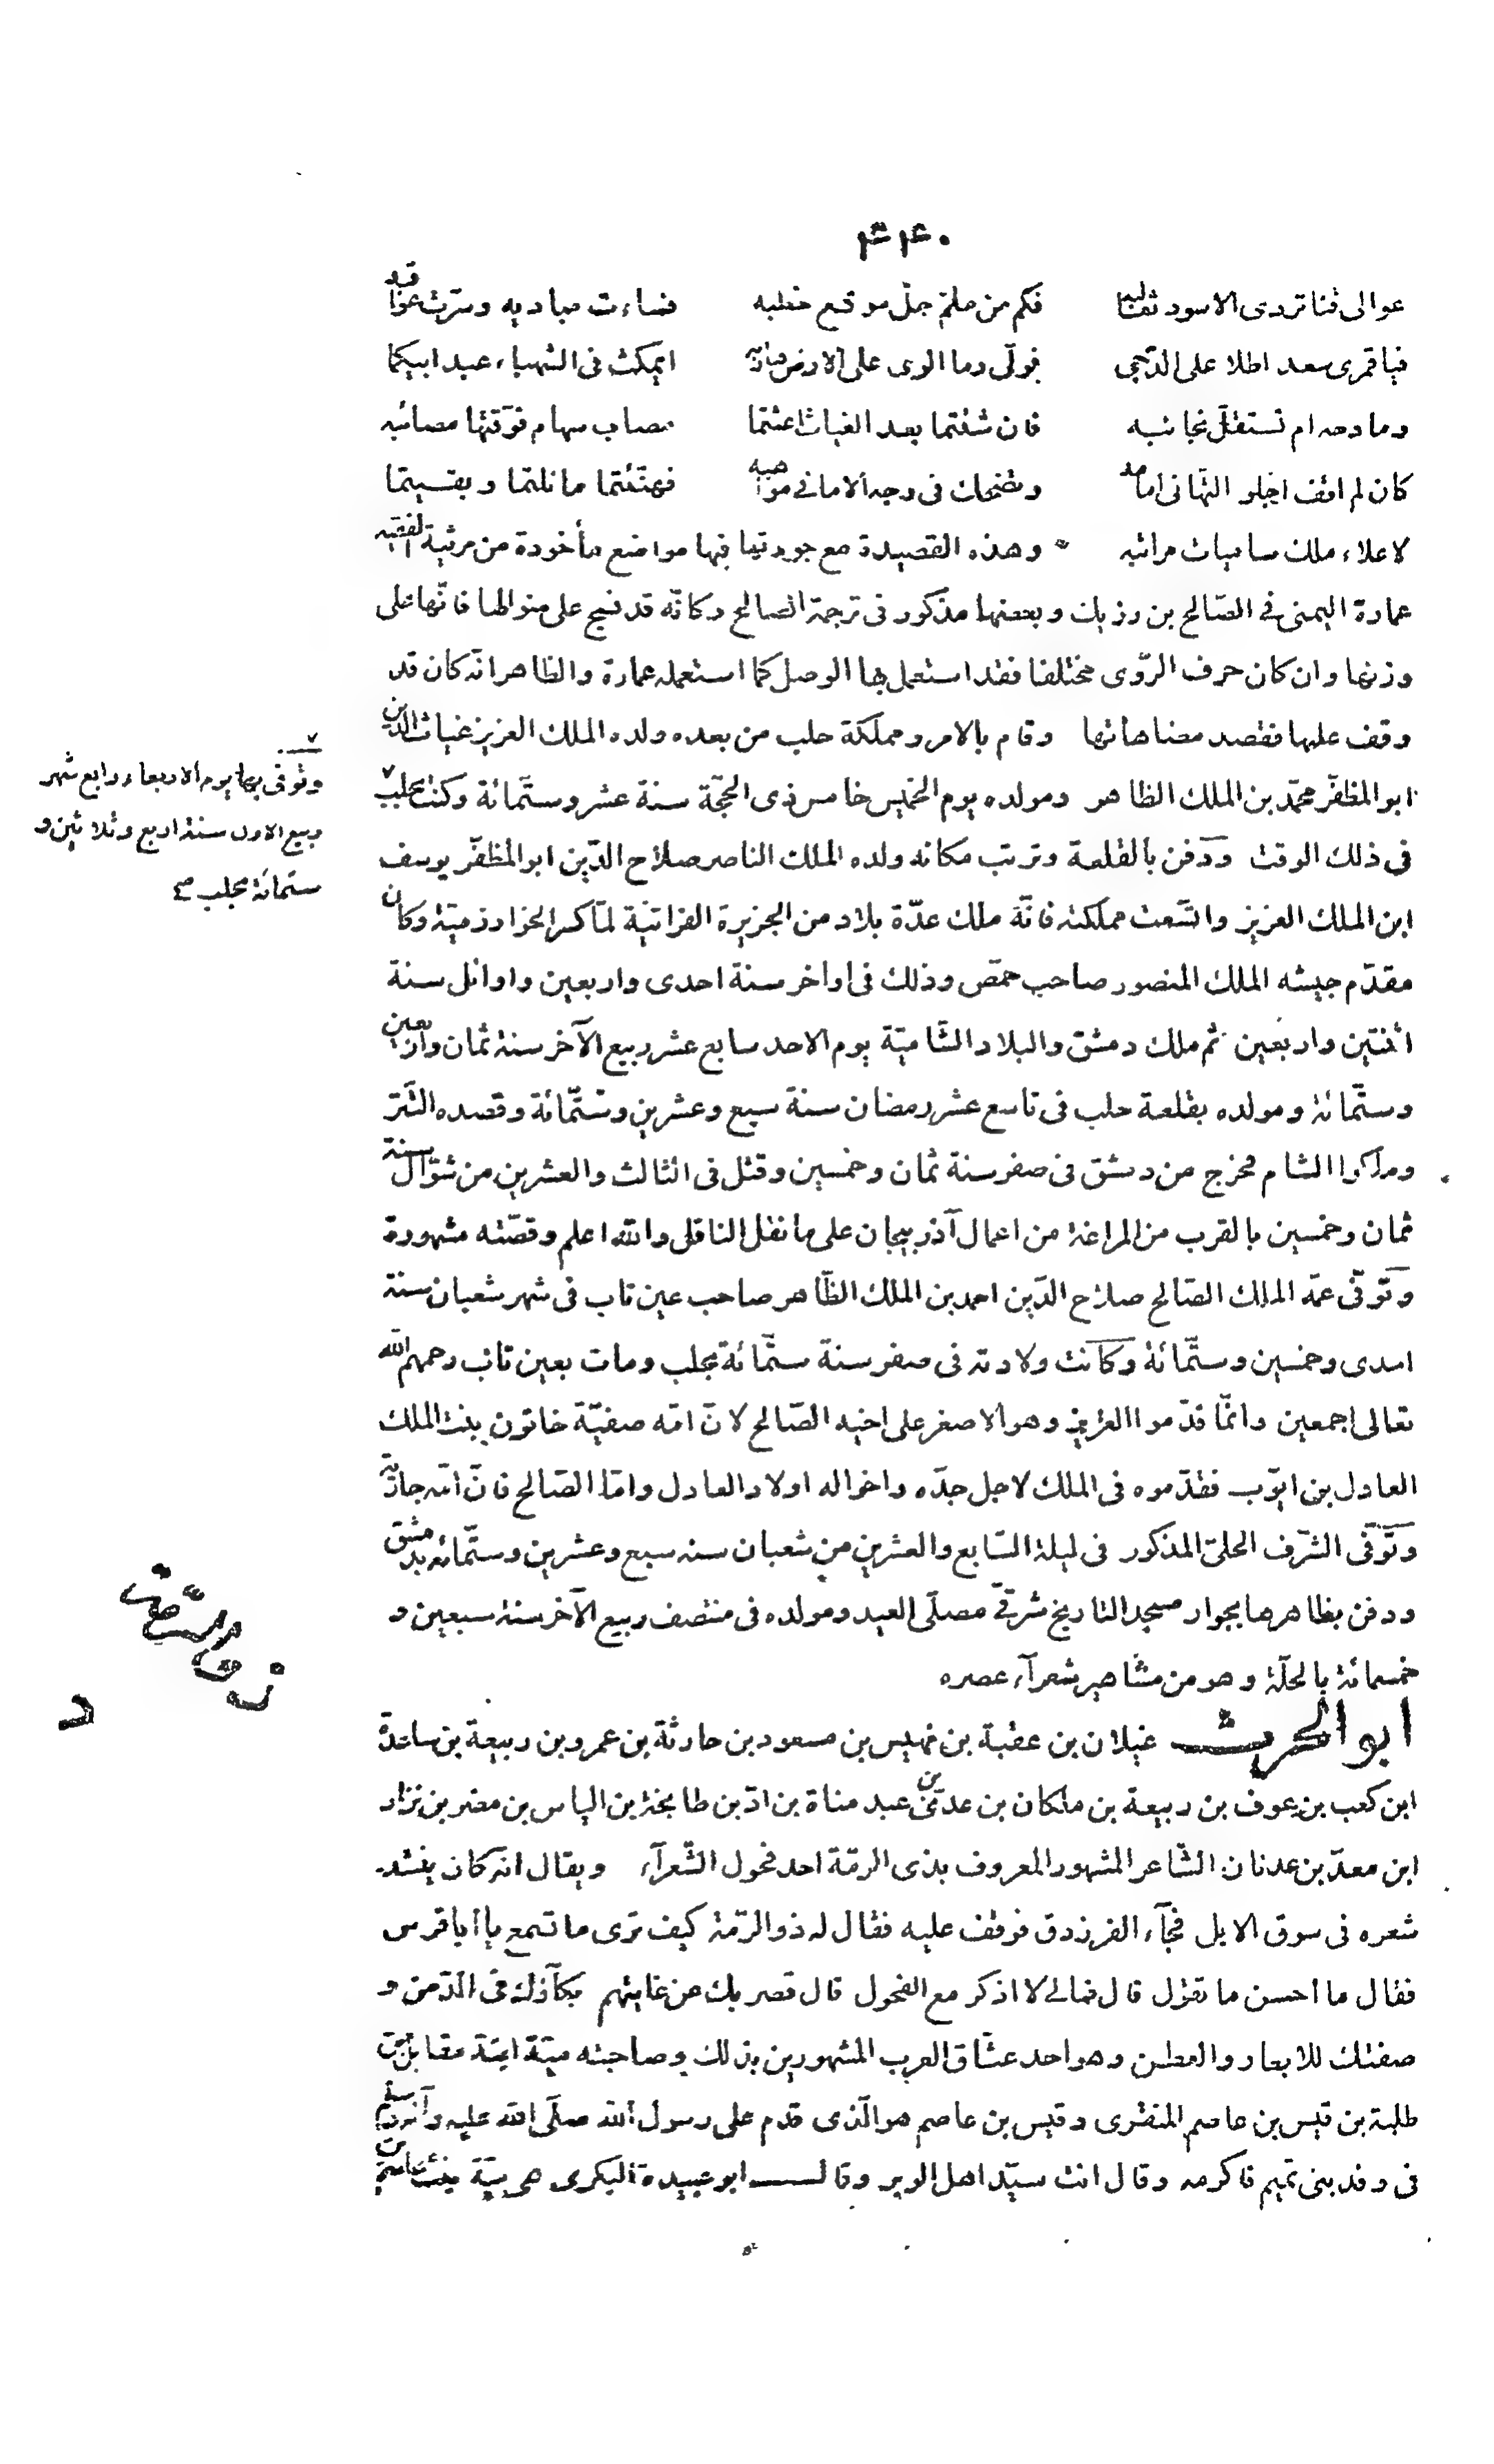 ٤٣٤٠
عوالى قنا تردى الاسود ثعالبه فكم من ملمّ جلّ موقع خطبه فساءت مباديه وسرّت عواقبه
فيا قمرى سعد اطلا على الدّجى فولّى وما الوى على الارض ايمكث فى الشهباء عبد ابيكما
ومادحه ام تستقلّ نجائبه فان شئتما بعد الغياث اغثتما مصاب سهام فوّقتها مصائبه
كان لم اقف اجلو التهانى امامه وتضحك فى وجه الامانى مواهبه فهنّئتما ما نلتما وبقيتما
لاعلاء ملك ساميات مراتبه وهذه القصيدة مع جودتها فيها مواضع مأخوذة من مرثية الفقيه
عمارة اليمنى فى الصّالح بن رزيك وبعضها مذكور فى ترجمة الصالح وكانّه قد نسج على منوالها فانّها على
وزنها وان كان حرف الرّوى مختلفا فقد استعمل بها الوصل كما استعمله عمارة والظاهر انّه كان قد
وقف عليها فقصد مضاهاتها وقام بالامر ومملكة حلب من بعده ولده الملك العزيز غياث الدين
ابو المظفّر محمّد بن الملك الظاهر ومولده يوم الخميس خامس ذى الحجّة سنة عشر وستّمائة وكنت بحلب
فى ذلك الوقت ودفن بالقلعة وترتب مكانه ولده الملك الناصر صلاح الدّين ابو المظفّر يوسف
ابن الملك العزيز واتّسعت مملكته فانّه ملك عدّة بلاد من الجزيرة الفراتيّة لمّا كسر الخوارزميّة وكان
مقدّم جيشه الملك المنصور صاحب حمص وذلك فى اواخر سنة احدى واربعين واوائل سنة
اثنتين واربعين ثم ملك دمشق والبلاد الشّاميّة يوم الاحد سابع عشر ربيع الآخر سنة ثمان واربعين
وستّمائة ومولده بقلعة حلب فى تاسع عشر رمضان سنة سبع وعشرين وستّمائة وقصده التتر
وملكوا الشام فخرج من دمشق فى صفر سنة ثمان وخمسين وقتل فى الثالث والعشرين من شوّال سنة
ثمان وخمسين بالقرب من المراغة من اعمال آذربيجان على ما نقل الناقل والله اعلم وقصّته مشهورة
وتوفّى عمّه الملك الصّالح صلاح الدّين احمد بن الملك الظّاهر صاحب عين تاب فى شهر شعبان سنة
احدى وخمسين وستّمائة وكانت ولادته فى صفر سنة ستّمائة بحلب ومات بعين تاب رحمهم الله
تعالى اجمعين وانّما قدّموا العزيز وهو الاصغر على اخيه الصّالح لانّ امّه صفيّة خاتون بنت الملك
العادل بن ايوّب فقدّموه فى الملك لاجل جدّه واخواله اولاد العادل وامّا الصّالح فانّ امّه جارية
وتوفّى الشّرف الحلىّ المذكور فى ليلة السّابع والعشرين من شعبان سنه سبع وعشرين وستّمائه بدمشق
ودفن بظاهرها بجوار مسجد التاريخ شرقىّ مصلّى العيد ومولده فى منتصف ربيع الآخر سنة سبعين و
خمسمائة بالحلّة وهو من مشاهير شعرآء عصره
ابو الحرث غيلان بن عقبة بن نهيس بن مسعود بن حارثة بن عمرو بن ربيعة بن ساعدة
ابن كعب بن عوف بن ربيعة بن ملكان بن عدىّ بن عبد مناة بن ادّ بن طابخة بن الياس بن مضر بن نزار
ابن معدّ بن عدنان الشّاعر المشهور المعروف بذى الرمّة احد فحول الشّعرآء ويقال انه كان ينشد
شعره فى سوق الابل فجآء الفرزدق فوقف عليه فقال له ذو الرّمّة كيف ترى ما تسمع يا أبا فرس
فقال ما احسن ما تقول قال فمالى لا اذكر مع الفحول قال قصر بك عن غايتهم بكآؤك فى الدّمن و
صفتك للابعار والعطن وهو احد عشّاق العرب المشهورين بذلك وصاحبته ميّة ابنة مقاتل بن
طلبة بن قيس بن عاصم المنقرى وقيس بن عاصم هو الّذى قدم على رسول الله صلّى الله عليه وآله وسلم
فى وفد بنى تميم فاكرمه وقال انت سيّد اهل الوبر وقال ابو عبيدة البكرى هى ميّة بنت عاصم
وتوفى بها يوم الاربعاء رابع شهر
ربيع الاول سنة اربع وثلاثين و
ستمائة بحلب صح